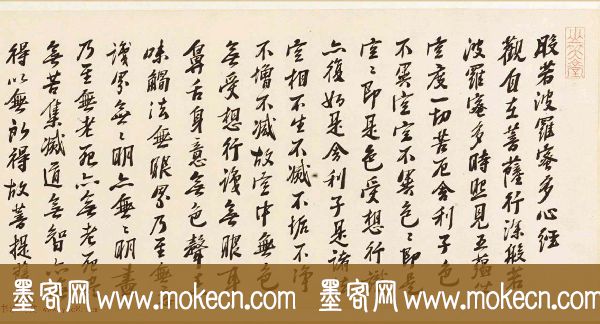 般若波羅蜜多心經
觀自在菩薩行深般若
波羅蜜多時照見五蘊
空度一切苦厄舍利子色
不異空空不異色〻即是
空〻即是色受想行識
亦復如是舍利子是諸
空相不生不滅不垢不淨
不增不減故空中無色
無受想行識無眼耳
鼻舌身意無色聲
味觸法無眼界乃至無
識界無〻明亦無〻明盡
乃至無老死亦無老死
無苦集滅道無智亦
得以無所得故菩提
墨客网 www.mokecn.com 墨客网 www.mokecn.com